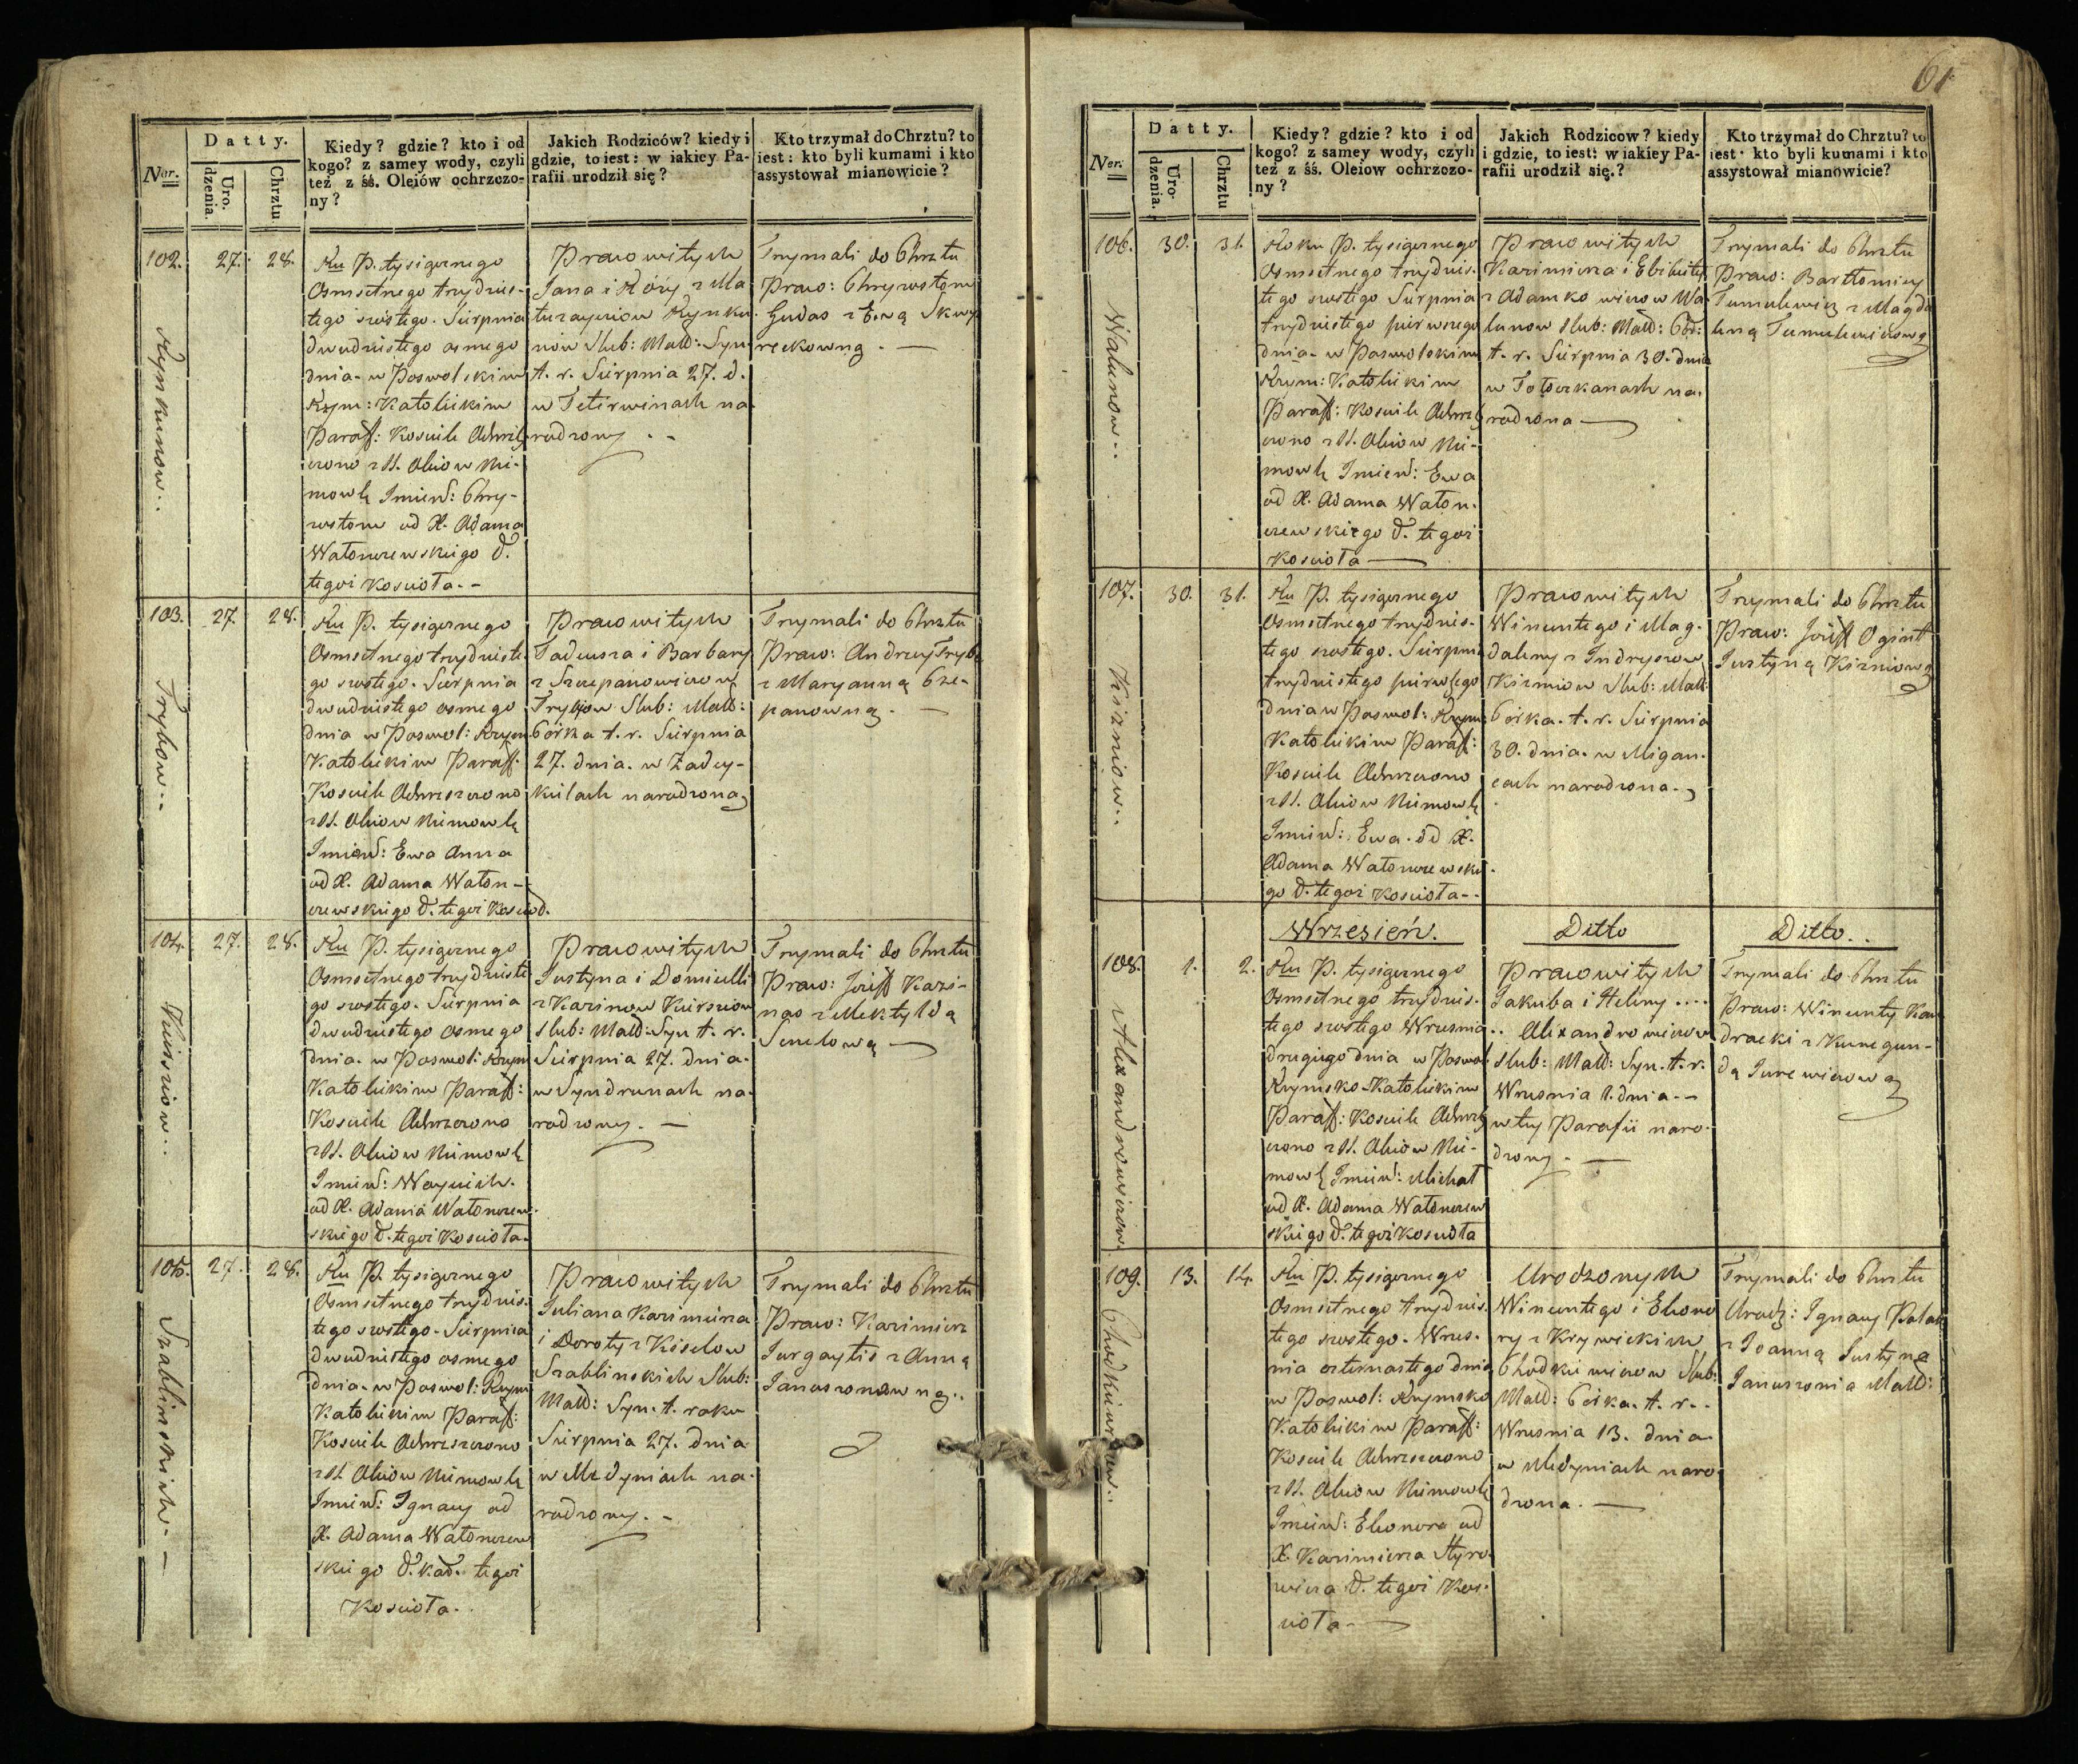 61
Ner.
Datty.
Uro-
dzenia.
Chrztu
Kiedy? gdzie? kto i od
kogo? z samey wody, czyli
też z śś. Oleiów ochrzczo-
ny?
Jakich Rodziców? kiedy i
gdzie, to iest: w iakiey Pa-
rafii urodził się?
Kto trzymał do Chrztu? to
iest: kto byli kumami i kto
assystował mianowicie?
102.
27.
28.
Rynkunow..
Ru P. tysiącznego
Osmsetnego trzydzies-
tego szóstego. Sierpnia
dwudziestego osmego
dnia w Poswolskim
Rzym: Katolickim
Paraff: Kosciele Ochrzcz
czono z SS. Oleiow Nie-
mowlę Imien: Chry-
zostom od X. Adama
Watonczewskiego D.
tegoż Kościoła.-
Prawowitych
Jana i Róży z Ma
turayciow Rynku
now Slub: Małż: Syn
t. r. Sierpnia 27. d.
w Tetirwinach na-
rodzony.-
Trzymali do Chrztu
Praw: Chryzostom
Gudas z Ewą Skwy
reckowną.-
103.
27.
28.
Trybow..
Ru P. tysiącznego
Osmsetnego trzydzieste
go szostego. Sierpnia
dwudziestego osmego
dnia w Poswol: Rzym
Katolickim Paraff:
Kosciele Ochrzszczono
z SS. Oleiow Niemowlę
Imien: Ewa Anna
od X. Adama Waton-
czewskiego D. tegoż Kościoł.
Prawowitych
Tadeusza i Barbary
z Szczepanowiczow
Trybow Slub: Małż:
Córka t. r. Sierpnia
27. dnia. w Zadey-
kielach narodzona
Trzymali do Chrztu
Praw: Andrzey Tryba
z Maryanną Cze-
panowną.-
104.
27.
28.
Kiersziow..
Ru P. tysiącznego
Osmsetnego trzydzieste
go szostego. Sierpnia
dwudziestego osmego
dnia. w Poswol: Rzym
Katolickim Paraff:
Kosciele Ochrzczono
z SS. Oleiow Niemowlę
Imien: Woyciech.
od X. Adama Watonczew-
skiego D. tegoż Kościoła.
Prawowitych
Justyna i Domicelli
z Kazinow Kiersziow
Slub: Małż: Syn t. r.
Sierpnia 27. dnia.
w Syndrunach na-
rodzony.-
Trzymali do Chrztu
Praw: Józeff Kazi-
nas z Mektyldą
Senelową
105.
27.
28.
Szablinskich.-
Ru P. tysiącznego
Osmsetnego trzydzies-
tego szostego. Sierpnia
dwudziestego osmego
dnia. w Poswol: Rzym
Katolickim Paraff:
Kosciele Ochrzszczono
z SS. Oleiow Niemowlę
Imien: Ignacy od
X. Adama Watonczew
skiego D. Kad. tegoż
Kościoła.
Prawowitych
Juliana Kazimierza
i Doroty z Kiselow
Szablinskich Slub:
Małż: Syn. t. roku
Sierpnia 27. dnia
w Medyniach na-
rodzony.-
Trzymali do Chrztu
Praw: Kazimierz
Jurgaytis z Anną
Januszonawną..
Ner.
Datty.
Uro-
dzenia.
Chrztu
Kiedy? gdzie? kto i od
kogo? z samey wody, czyli
też z śś. Oleiow ochrzczo-
ny?
Jakich Rodzicow? kiedy
i gdzie, to iest: w iakiey Pa-
rafii urodził się.?
Kto trzymał do Chrztu? to
iest: kto byli kumami i kto
assystował mianowicie?
106.
30.
31.
Walunow..
Roku P. tysiącznego
Osmsetnego trzydzies-
tego szostego Sierpnia
trzydziestego pierwszego
dnia. w Poswolskim
Rzym: Katolickim
Paraff: Kosciele Ochrzcz
czono z SS. Oleiow Nie-
mowlę Imien: Ewa
od X. Adama Waton-
czewskiego D. tegoż
Kościoła
Prawowitych
Kazimierza i Elżbiety
z Adamkowiczow Wa
lunow Slub: Małż: Cór:
t. r. Sierpnia 30. dnia
w Tołoczkanach na-
rodzona
Trzymali do Chrztu
Praw: Bartłomiey
Tumulewicz z Magda
leną Tumulewiczową
107.
30.
31.
Kizniow..
Ru P. tysiącznego
Osmsetnego trzydzies-
tego szostego. Sierpnia
trzydziestego pierwszego
dnia w Poswol: Rzym:
Katolickim Paraff:
Kosciele Ochrzczono
z SS. Oleiow Niemowlę
Imien: Ewa. od X.
Adama Watonczewskie-
go D. tegoż Kościoła-
Prawowitych
Wincentego i Mag-
daleny z Indryszow
Kizniow Slub: Małż:
Córka. t. r. Sierpnia
30. dnia. w Migan-
cach narodzona.
Trzymali do Chrztu
Praw: Józeff Ogint
Justyną Kizniową
Wrzesień.
Ditto
Ditto..
108.
1.
2.
Alexandrowiczow.
Ru P. tysiącznego
Osmsetnego trzydzies-
tego szostego Wrzesnia
drugiego dnia w Poswol
Rzymsko-Katolickim
Paraff: Kosciele Ochrzcz
czono z SS. Oleiow Nie-
mowlę Imien: Michał
od X. Adama Watonczew
skiego D. tegoż Kościoła
Prawowitych
Jakuba i Heleny....
.. Alexandrowiczow
Slub: Małż: Syn. t. r.
Wrzesnia 1. dnia.-
w tey Parafii naro-
dzony.-
Trzymali do Chrztu
Praw: Wincenty Kon
dracki z Kunegun-
dą Jurewiczową
109.
13.
14.
Chodkiewiczow..
Ru P. tysiącznego
Osmsetnego trzydzies-
tego szostego. Wrzes-
nia czternastego dnia
w Poswol: Rzymsko
Katolickim Paraff:
Kosciele Ochrzszczono
z SS. Oleiow Niemowlę
Imien: Eleonora od
X. Kazimierza Styro-
wicza D. tegoż Koś-
cioła-
Urodzonych
Wincentego i Eleono
ry z Krzywickich
Chodkiewiczow Slub:
Małż: Córka. t. r..
Wrzesnia 13. dnia
w Medyniach naro-
dzona.-
Trzymali do Chrztu
Urodz: Ignacy
z Joanną Justyna
Januszonia Małż: